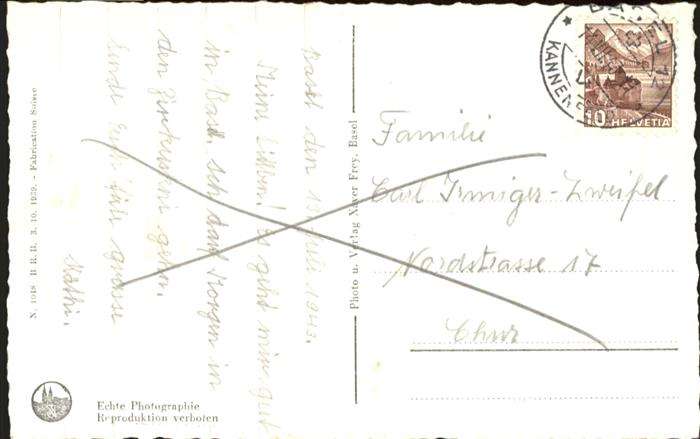 Basel den 13. Juli 1943.
Meine Lieben! Es geht mir gut
in Basel. Ich darf Morgen in
den Zirkus gehn.
Sende Euch viele Grüsse
Käthi.
Familie
Carl Irmiger-Zweifel
Nordstrasse 17
Chur
BASEL 12
KANNENFELD
10 HELVETIA
Photo u. Verlag Xaver Frey, Basel
N. 1018 B R B. 3. 10. 1939. - Fabrication Suisse
Echte Photographie
Reproduktion verboten